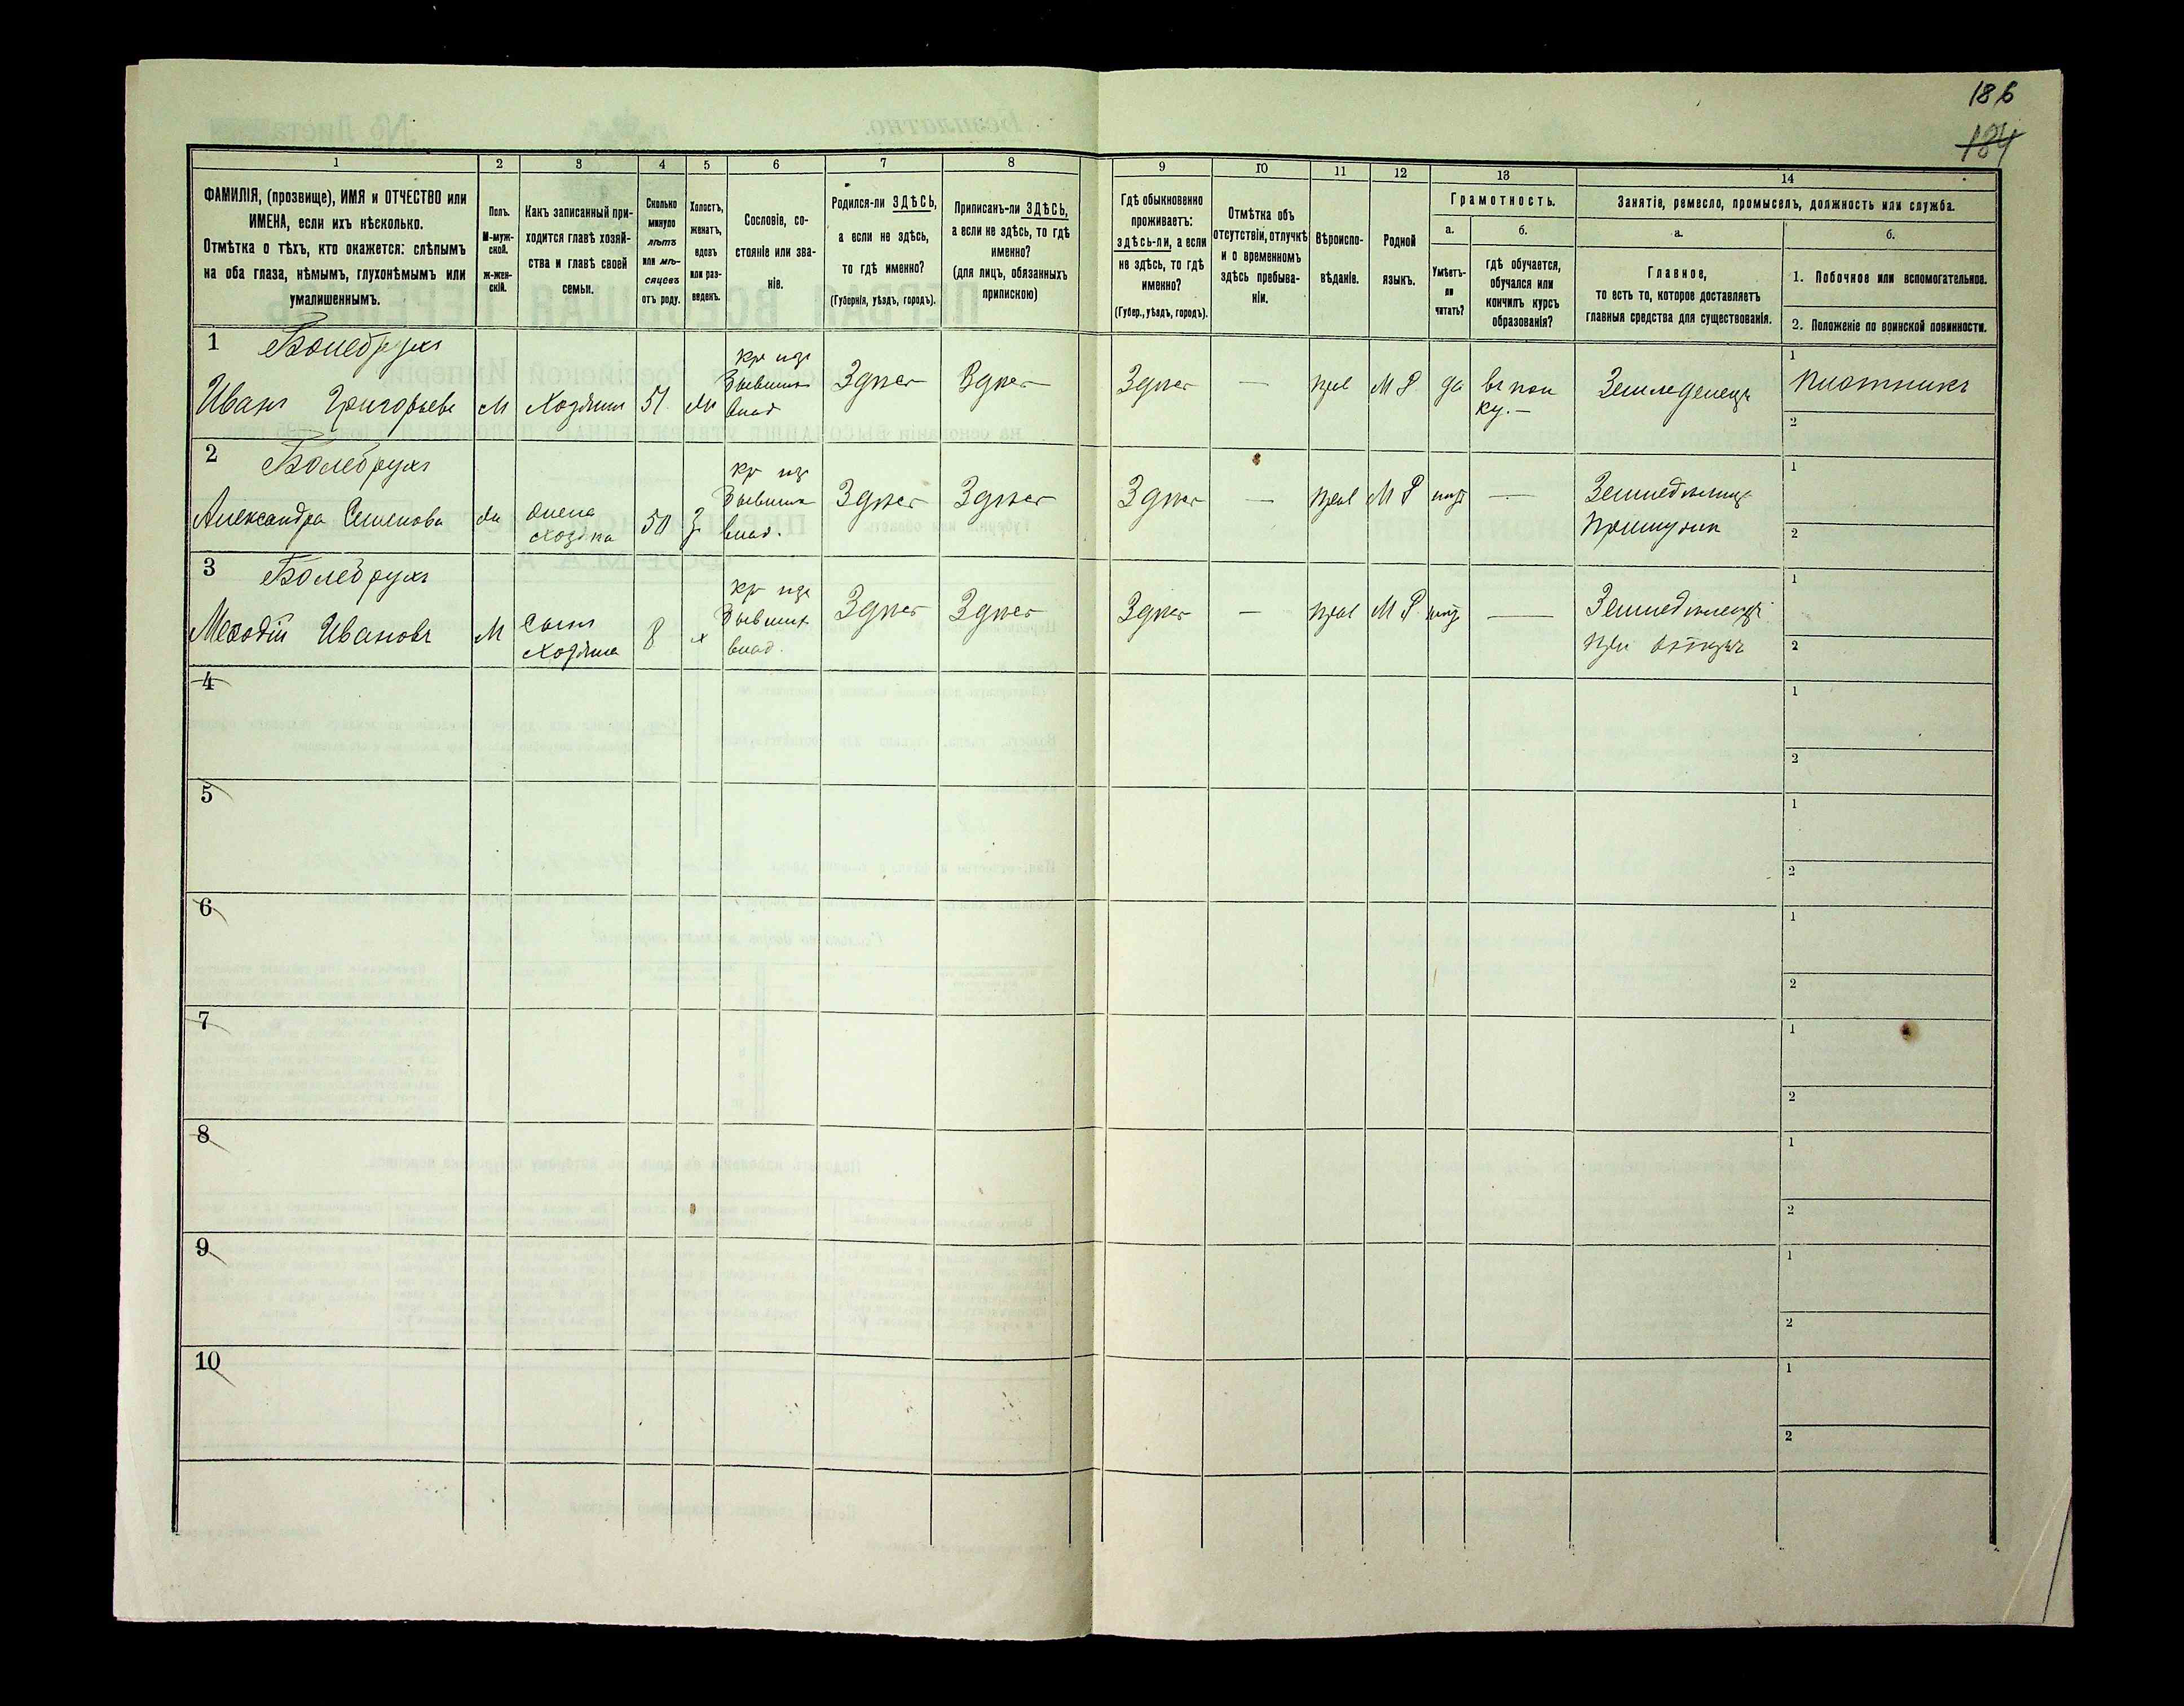 186
184
1
2
3
4
5
6
7
8
9
10
11
12
13
14
ФАМИЛІЯ, (прозвище), ИМЯ и ОТЧЕСТВО или
ИМЕНА, если ихъ нѣсколько.
Отмѣтка о тѣхъ, кто окажется: слѣпымъ
на оба глаза, нѣмымъ, глухонѣмымъ или
умалишеннымъ.
Полъ.
М-муж-
ской.
ж-жен-
скій.
Какъ записанный при-
ходится главѣ хозяй-
ства и главѣ своей
семьи.
Сколько
минуло
лѣтъ
или мѣ-
сяцевъ
отъ роду.
Холостъ,
женатъ,
вдовъ
или раз-
веденъ.
Сословіе, со-
стояніе или зва-
ніе.
Родился-ли ЗДѢСЬ,
а если не здѣсь,
то гдѣ именно?
(Губернія, уѣздъ, городъ).
Приписанъ-ли ЗДѢСЬ,
а если не здѣсь, то гдѣ
именно?
(для лицъ, обязанныхъ
припискою)
Гдѣ обыкновенно
проживаетъ:
здѣсь-ли, а если
не здѣсь, то гдѣ
именно?
(Губер., уѣздъ, городъ).
Отмѣтка объ
отсутствіи, отлучкѣ
и о временномъ
здѣсь пребыва-
ніи.
Вѣроиспо-
вѣданіе.
Родной
языкъ.
Грамотность.
а.
Умѣетъ-
ли
читать?
б.
гдѣ обучается,
обучался или
кончилъ курсъ
образованія?
Занятіе, ремесло, промыселъ, должность или служба.
а.
Главное,
то есть то, которое доставляетъ
главныя средства для существованія.
б.
1. Побочное или вспомогательное.
2. Положеніе по воинской повинности.
1 Болебрухъ
Иванъ Григорьевъ
м
хозяинъ
51
кр изъ
бывших
влад
Здѣсь
Здѣсь
Здѣсь
—
прав
М Р
да
Земледелецъ
1
плотникъ
2
2 Болебрухъ
Александра Семенова
жена
хозяина
50
з
кр изъ
бывших
влад.
Здѣсь
Здѣсь
Здѣсь
—
прав
М Р
нѣтъ
—
1
2
3 Болебрухъ
Мефодій Ивановъ
М
сынъ
хозяина
8
х
кр изъ
бывших
влад.
Здѣсь
Здѣсь
Здѣсь
—
прав
М Р
нѣтъ
—
при отцѣ
1
2
4
1
2
5
1
2
6
1
2
7
1
2
8
1
2
9
1
2
10
1
2